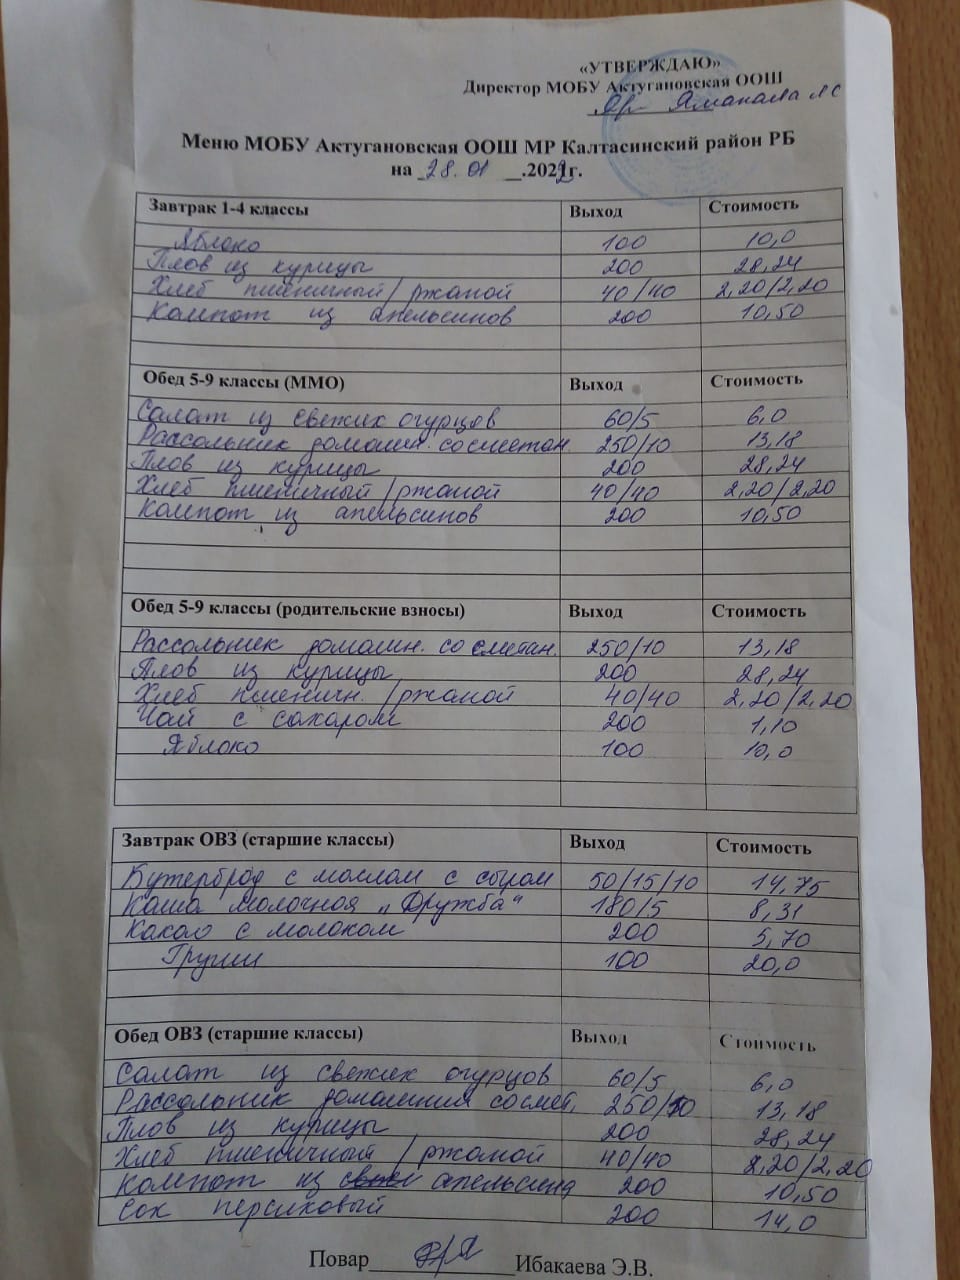 «УТВЕРЖДАЮ»
Директор МОБУ Актугановская ООШ
Меню МОБУ Актугановская ООШ МР Калтасинский район РБ
на 28.01 .2022г.
Завтрак 1-4 классы Выход Стоимость
Яблоко 100 10,0
Плов из курицы 200 28,24
Хлеб пшеничный/ржаной 40/40 2,20/2,20
Компот из апельсинов 200 10,50
Обед 5-9 классы (ММО) Выход Стоимость
Салат из свежих огурцов 60/5 6,0
Рассольник домашн. со сметан. 250/10 13,18
Плов из курицы 200 28,24
Хлеб пшеничный/ржаной 40/40 2,20/2,20
Компот из апельсинов 200 10,50
Обед 5-9 классы (родительские взносы) Выход Стоимость
Рассольник домашн. со сметан. 250/10 13,18
Плов из курицы 200 28,24
Хлеб пшеничн. /ржаной 40/40 2,20/2,20
Чай с сахаром 200 1,10
Яблоко 100 10,0
Завтрак ОВЗ (старшие классы) Выход Стоимость
Бутерброд с маслом с сыром 50/15/10 14,75
Каша молочная „Дружба“ 180/5 8,31
Какао с молоком 200 5,70
Груши 100 20,0
Обед ОВЗ (старшие классы) Выход Стоимость
Салат из свежих огурцов 60/5 6,0
Рассольник домашний со смет. 250/10 13,18
Плов из курицы 200 28,24
Хлеб пшеничный/ржаной 40/40 2,20/2,20
Компот из апельсин 200 10,50
Сок персиковый 200 14,0
Повар Ибакаева Э.В.